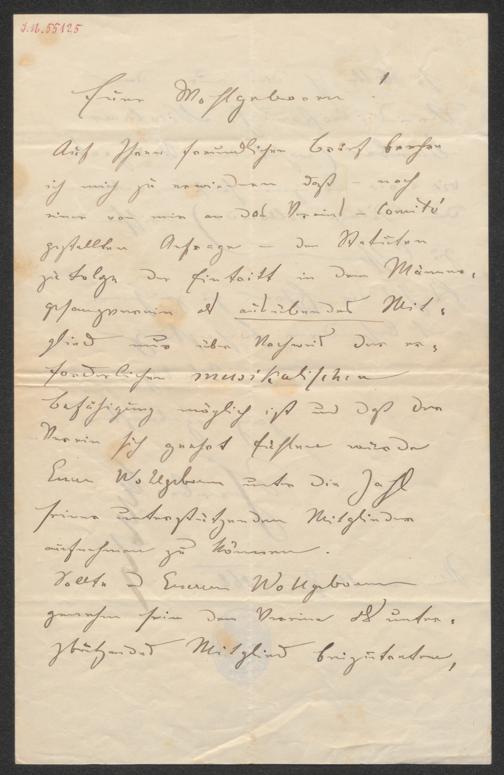 I.N. 55125
Euer Wohlgeboren!
Auf Ihren freundlichen Brief beehre
ich mich zu erwiedern daß – nach
einer von mir an das Vereins-Comité
gestellten Anfrage – den Statuten
zufolge der Eintritt in den Männer-
gesangverein als ausübendes Mit-
glied nur über Nachweis der er-
forderlichen musikalischen
Befähigung möglich ist und daß der
Verein sich geehrt fühlen würde
Euer Wohlgeboren unter die Zahl
seiner unterstützenden Mitglieder
aufnehmen zu können.
Sollte es Euer Wohlgeboren
genehm sein dem Vereine als unter-
stützendes Mitglied beizutreten,